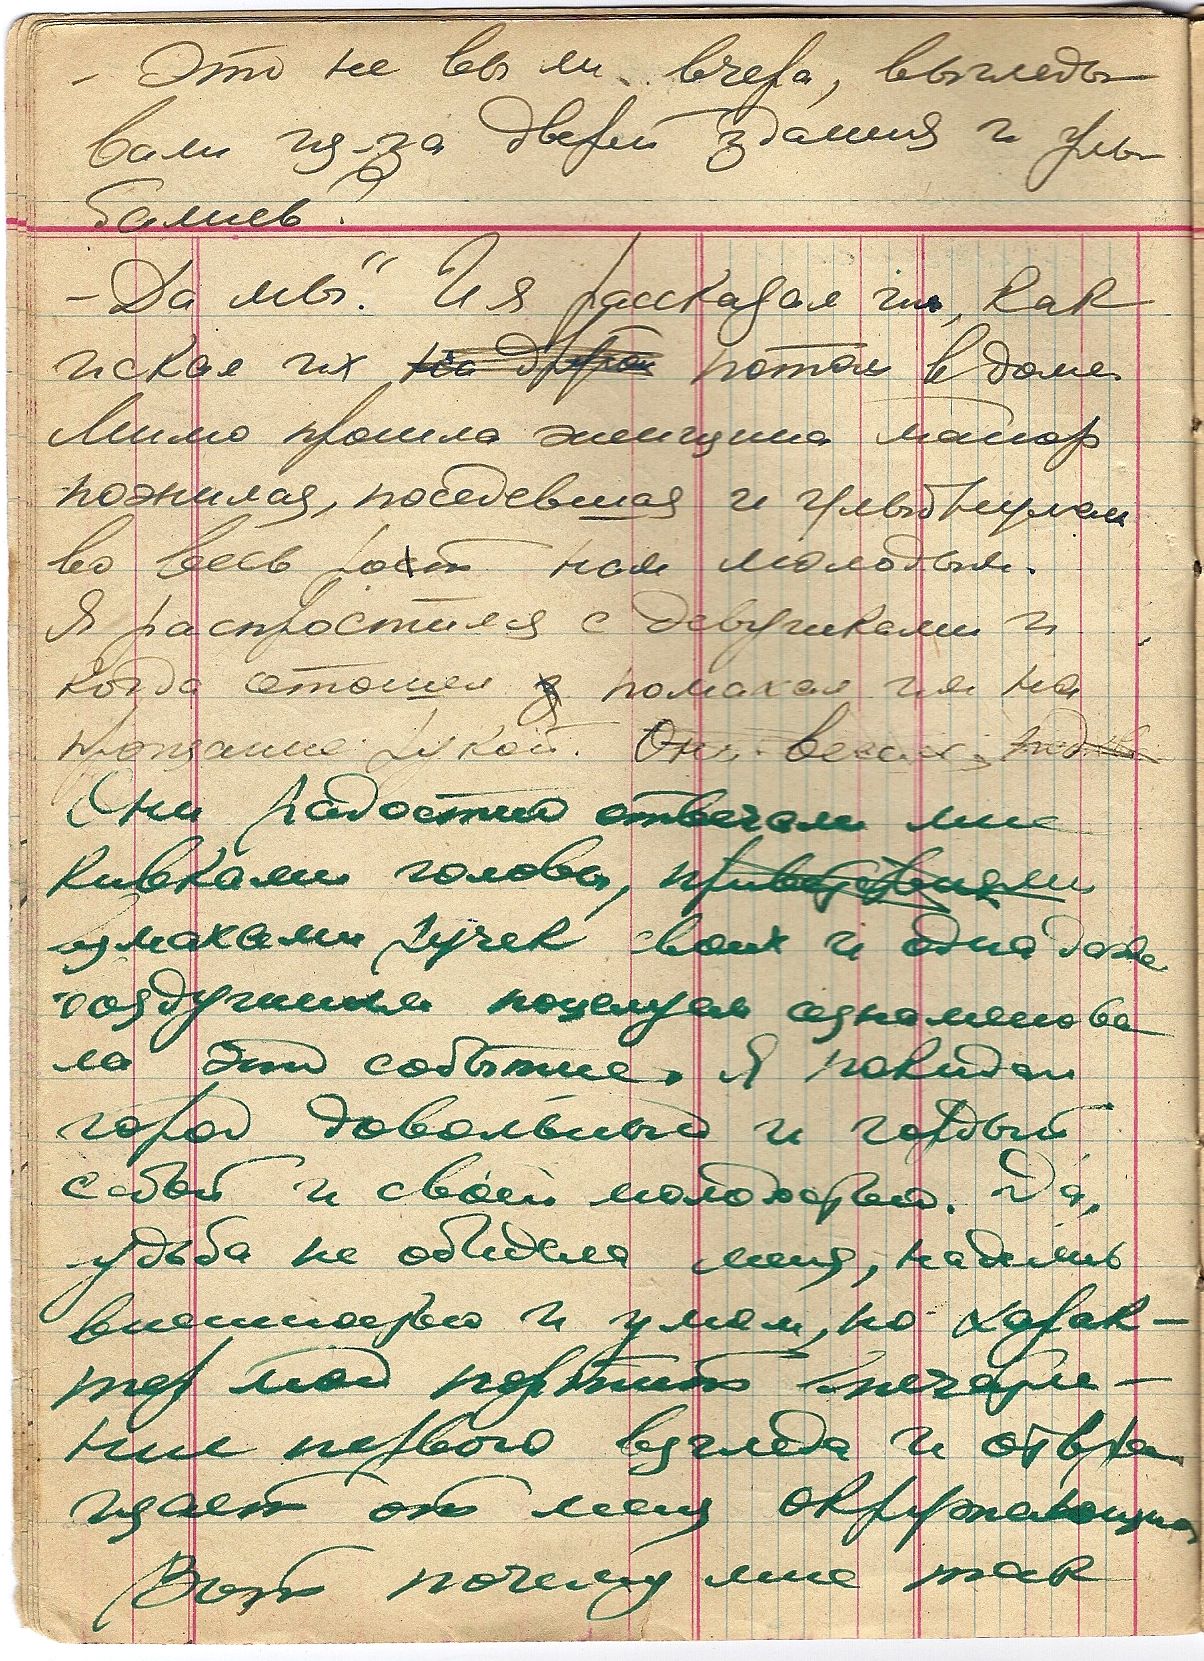 - Это не вы ли вчера, выгляды-
вали из-за дверей здания и улы-
бались?
- Да мы." И я рассказал им, как
искал их на другой потом в доме.
Мимо прошла женщина майор
пожилая, поседевшая и улыбнулась
во весь рот нам молодым.
Я распростился с девушками и
когда отошел я помахал им на
прощание рукой. Они весело
Они радостно отвечали мне
кивками головы, приветствиями
взмахами ручек своих и одна даже
воздушным поцелуем ознаменова
ла это событие. Я покидал
город довольный и гордый
собой и своей молодостью. Да,
судьба не обидела меня, наделив
внешностью и умом, но харак-
тер мой портит впечатле-
ние первого взгляда и отвра
щает от меня окружающих
Вот почему мне так